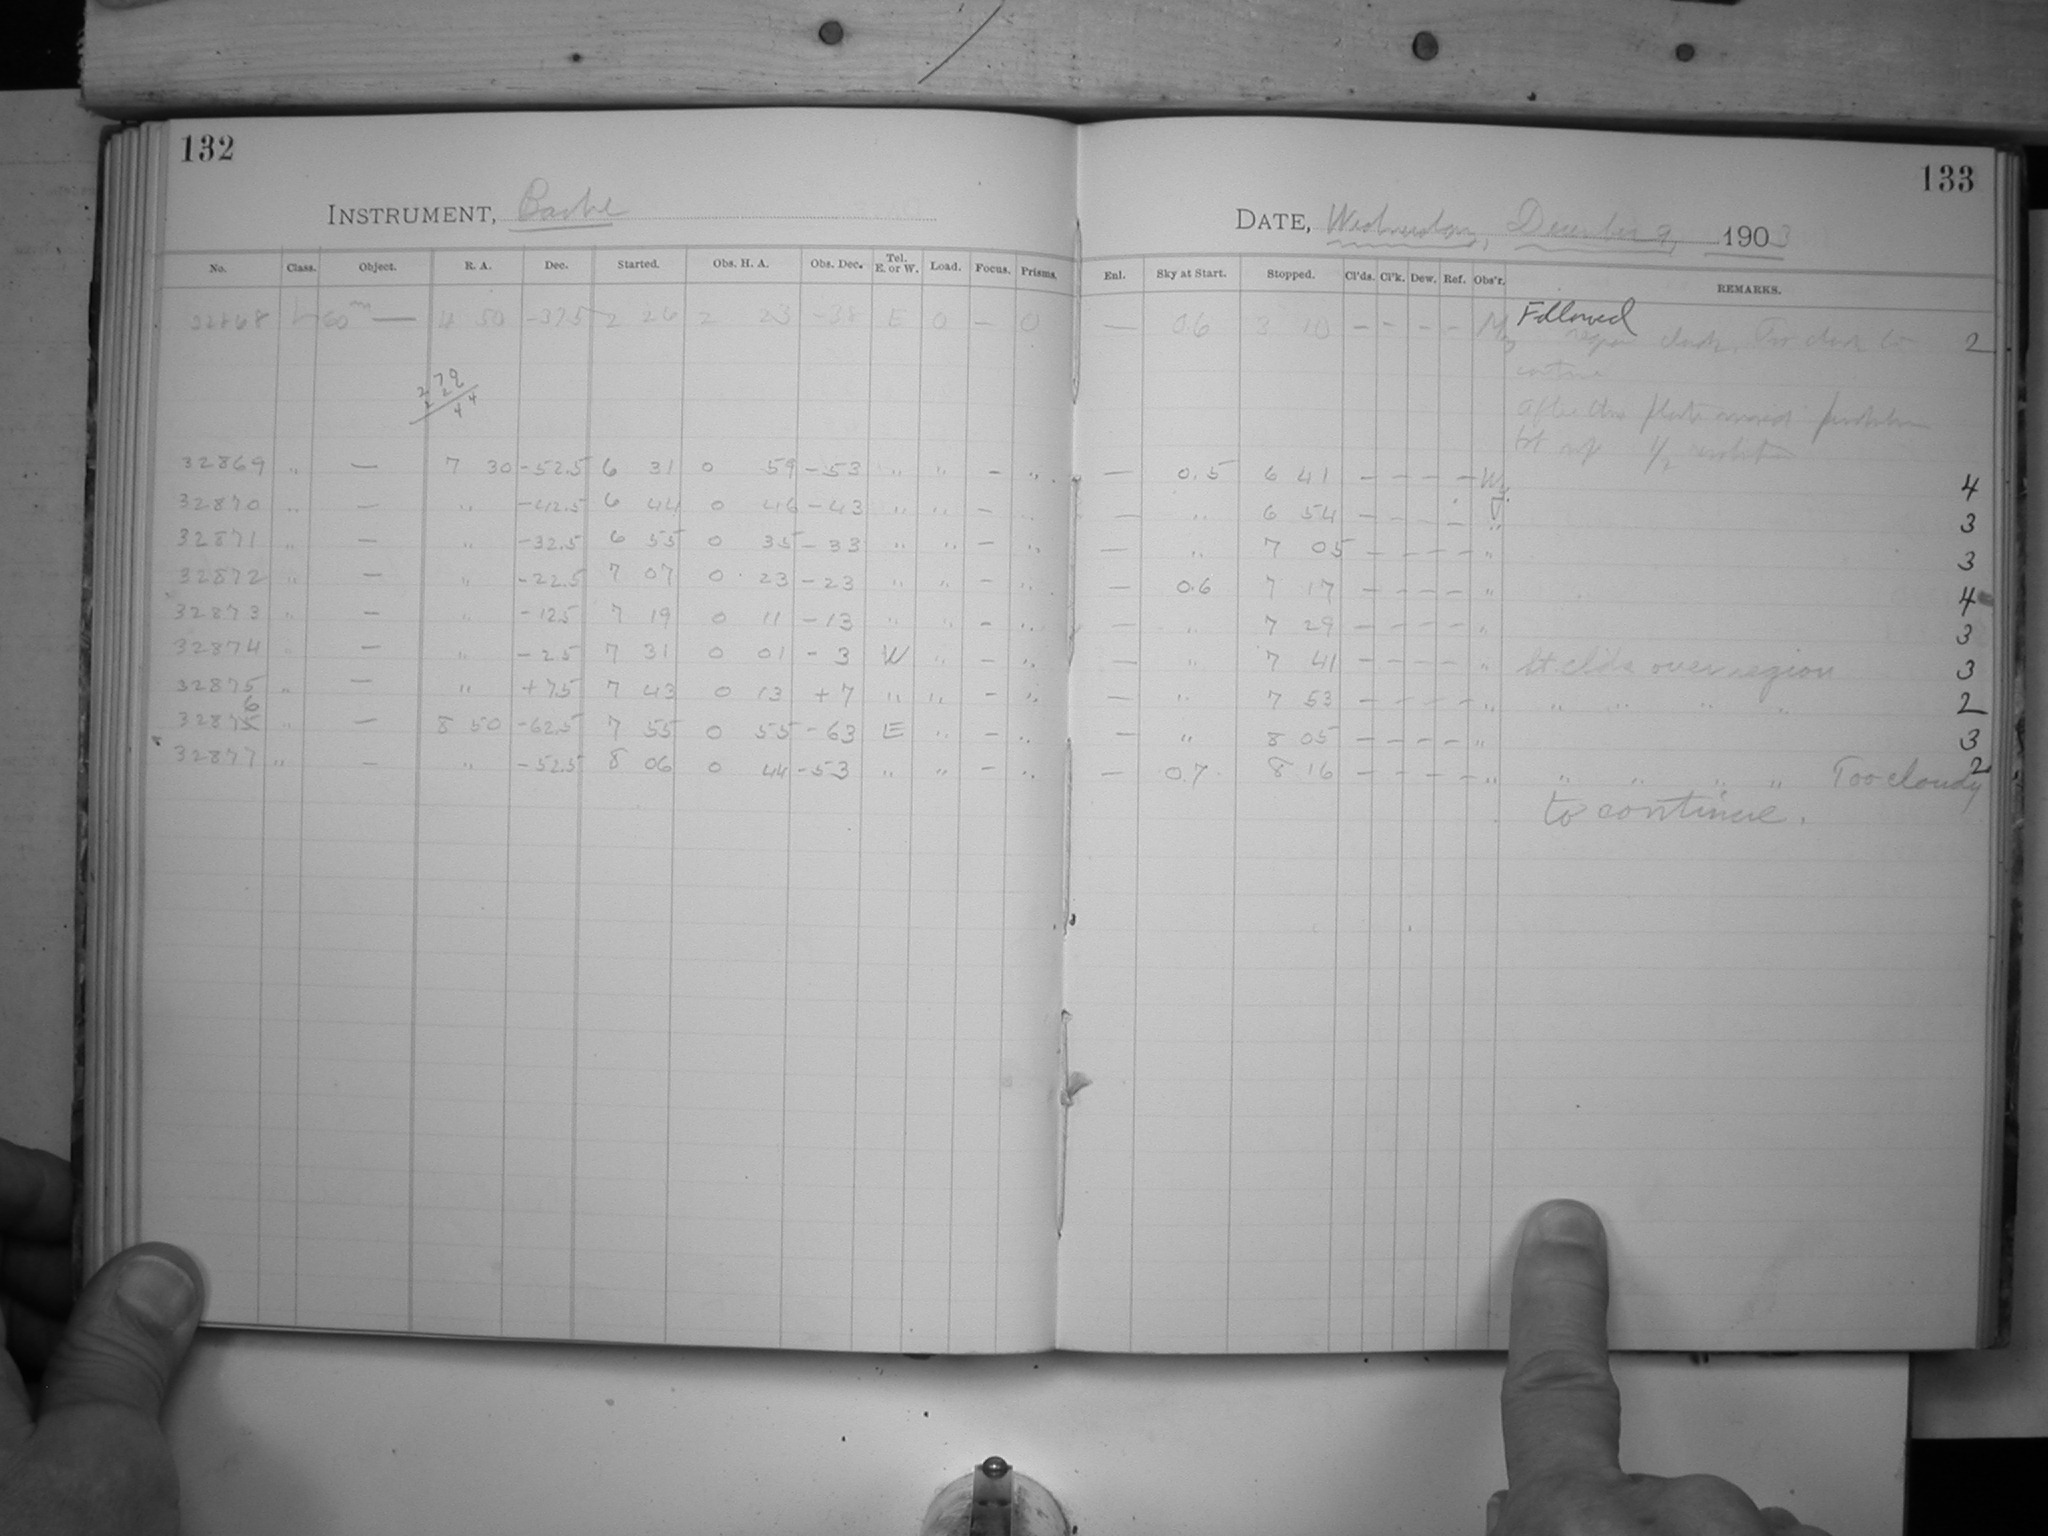 132
133
INSTRUMENT, Bache
DATE, Wednesday, December 9, 1903
No. Class. Object. R. A. Dec. Started. Obs. H. A. Obs. Dec. Tel. E. or W. Load. Focus. Prisms. Enl. Sky at Start. Stopped. Cl'ds. Cl'k. Dew. Ref. Obs'r. REMARKS.
32868 L 60m — 4 50 -37.5 2 26 2 23 -38 E 0 — 0 — 0.6 3 10 — — — — Followed 2
region Too to
continue
After this plate
1/2
32869 " — 7 30 -52.5 6 31 0 59 -53 " " — " — 0.5 6 41 — — — — 4
32870 " — " -42.5 6 44 0 46 -43 " " — " — " 6 54 — — — — " 3
32871 " — " -32.5 6 55 0 35 -33 " " — " — " 7 05 — — — — " 3
32872 " — " -22.5 7 07 0 23 -23 " " — " — 0.6 7 17 — — — — " 4
32873 " — " -12.5 7 19 0 11 -13 " " — " — " 7 29 — — — — " 3
32874 " — " -2.5 7 31 0 01 -3 W " — " — " 7 41 — — — — " lt. clds over region 3
32875 " — " +7.5 7 43 0 13 +7 " " — " — " 7 53 — — — — " " " " " 2
32876 " — 8 50 -62.5 7 55 0 55 -63 E " — " — " 8 05 — — — — " 3
32877 " — " -52.5 8 06 0 44 -53 " " — " — 0.7 8 16 — — — — " " " " " Too cloudy 2
to continue.